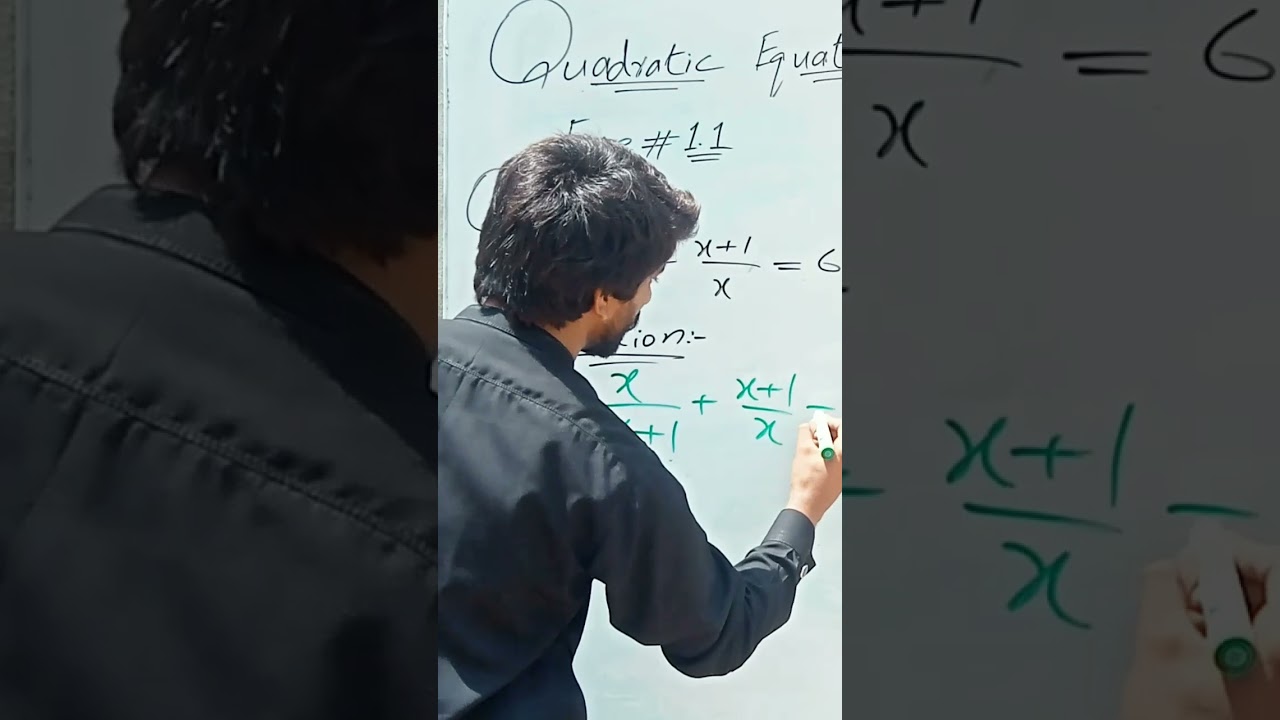 Quadratic Equat
# 1.1
x+1 / x = 6
tion:-
x / x+1 + x+1 / x =